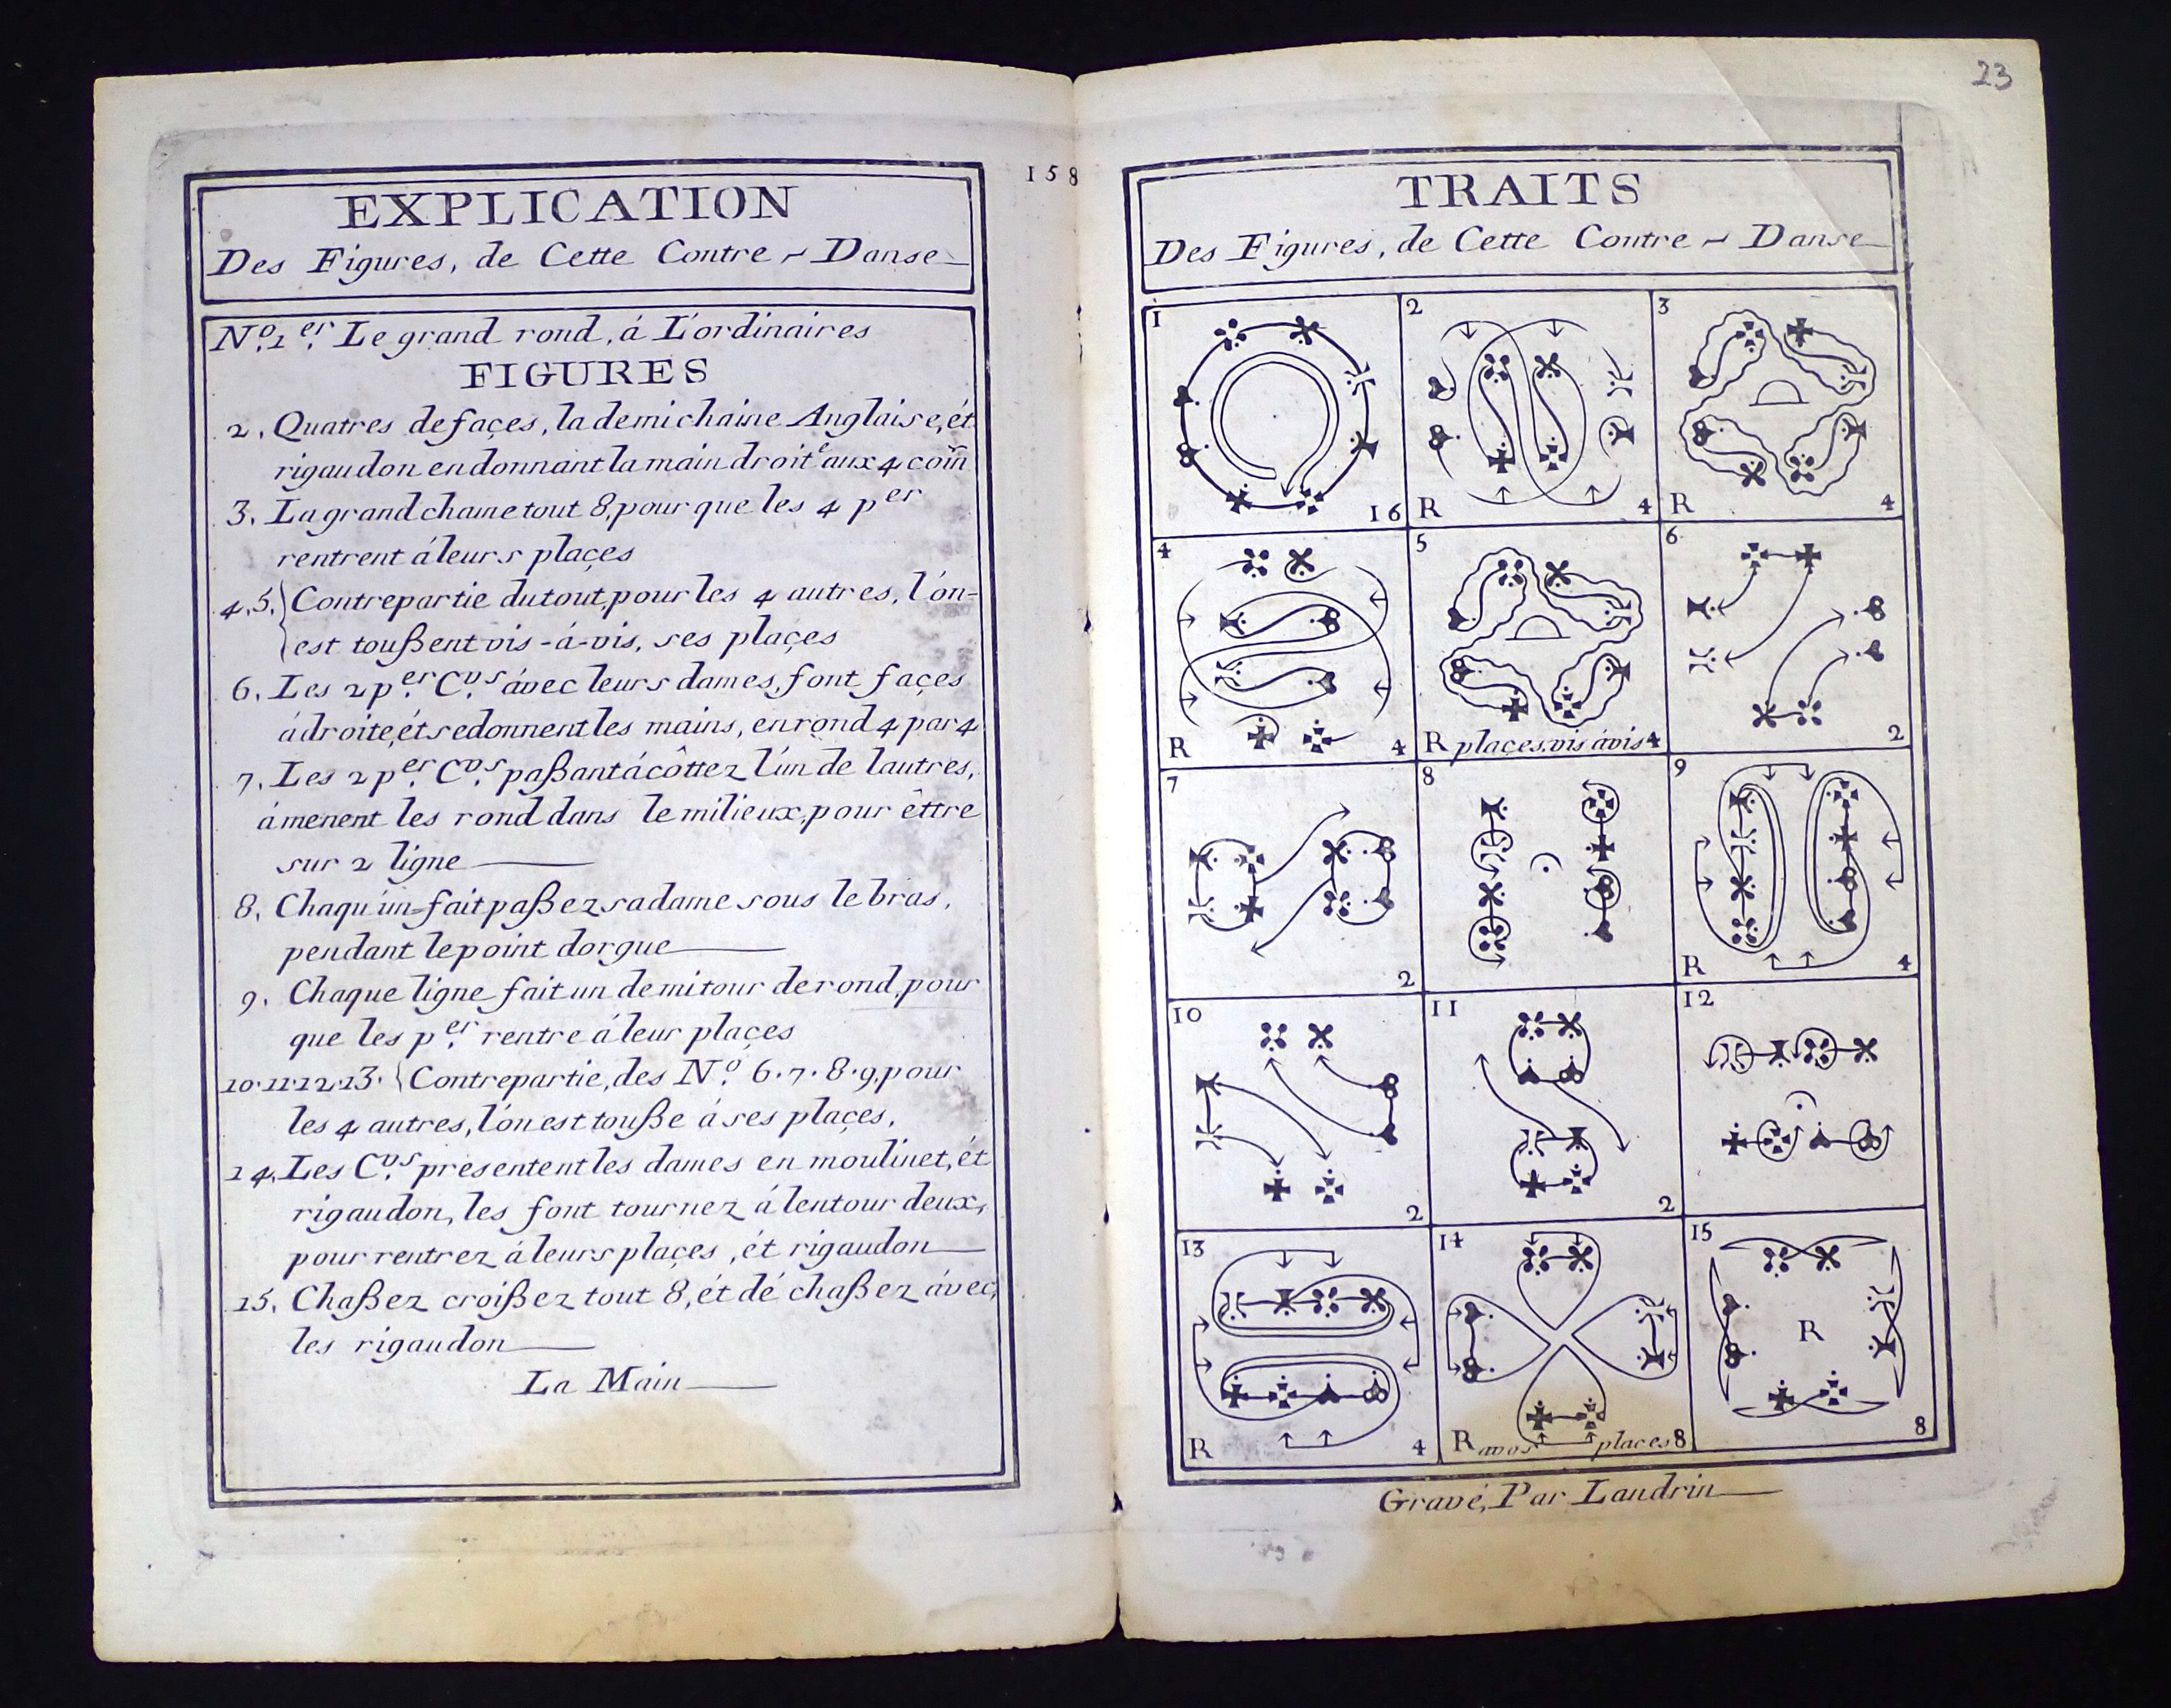 EXPLICATION
Des Figures, de Cette Contre-Danse
N.º 1.er Le grand rond, á L'ordinaires
FIGURES
2. Quatres de façes, la demi chaine Anglaise, ét
rigaudon en donnant la main droite aux 4 coin
3. La grand chaine tout 8, pour que les 4 per
rentrent á leurs plaçes
4.5. Contrepartie du tout, pour les 4 autres, l'on
est toußent vis-á-vis, ses plaçes
6. Les 2 p.er C.vs ávec leurs dames, font façes
á droite, ét se donnent les mains, en rond 4 par 4
7. Les 2 p.er C.vs paßant á côttez l'un de lautres,
ámenent les rond dans le milieux, pour êttre
sur 2 ligne
8. Chaqu'un fait paßez sa dame sous le bras,
pendant le point dorgue
9. Chaque ligne fait un demi tour de rond, pour
que les p.er rentre á leur plaçes
10.11.12.13. Contrepartie, des N.º 6.7.8.9, pour
les 4 autres, l'on est touße á ses plaçes,
14. Les C.vs presentent les dames en moulinet, ét
rigaudon, les font tournez á lentour deux,
pour rentrez á leurs plaçes, ét rigaudon
15. Chaßez croißez tout 8, ét dé chaßez ávec,
les rigaudon
La Main
158
23
TRAITS
Des Figures, de Cette Contre-Danse
1
16
2
R 4
3
R 4
4
R 4
5
R plaçes vis ávis 4
6
2
7
2
8
9
R 4
10
2
11
2
12
13
R 4
14
R avos places 8
15
R
8
Gravé, Par Landrin